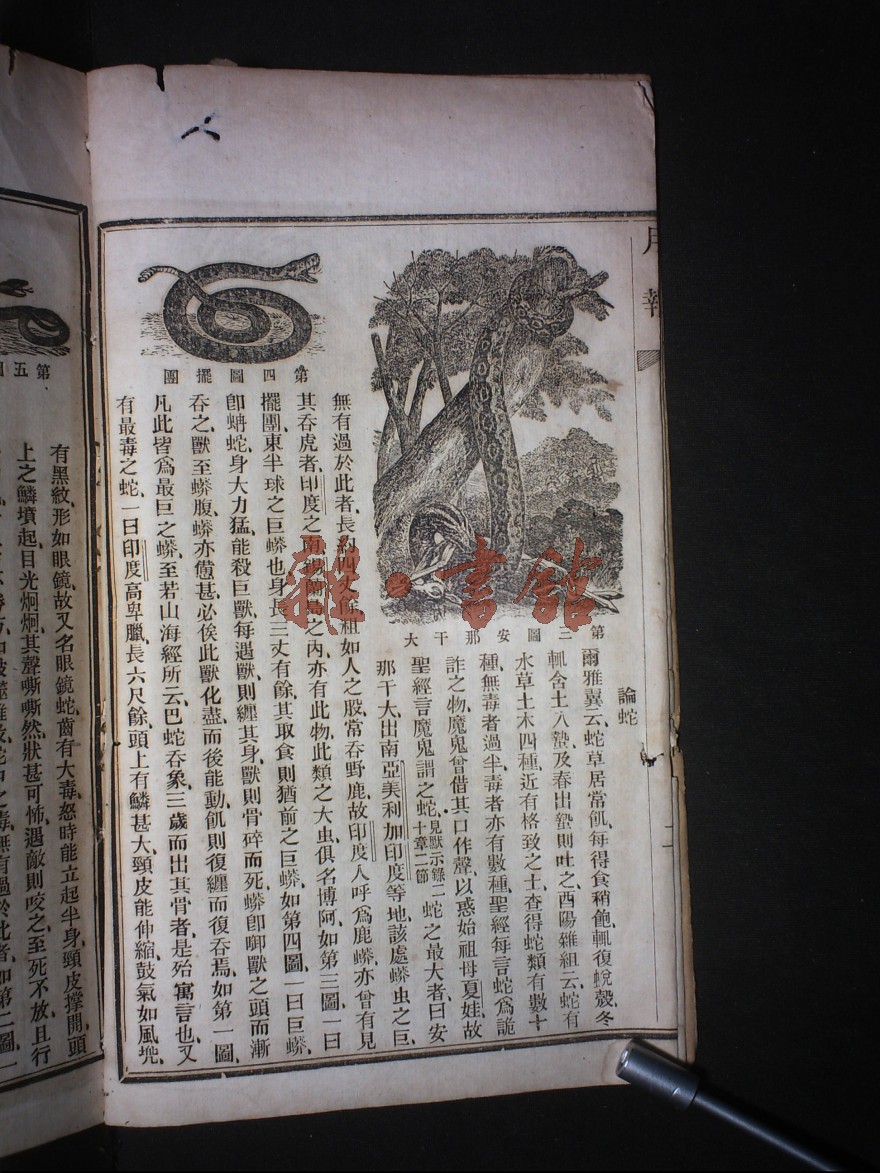 月報
二
論蛇
爾雅翼云蛇草居常飢每得食稍飽輒復蛻殼冬
輒含土入蟄及春出蟄則吐之酉陽雜組云蛇有
水草土木四種近有格致之士查得蛇類有數十
種無毒者過半毒者亦有數種聖經每言蛇爲詭
詐之物魔鬼曾借其口作聲以惑始祖母夏娃故
聖經言魔鬼謂之蛇見默示錄二十章二節蛇之最大者曰安
那干大出南亞美利加印度等地該處蟒虫之巨
第三圖安那干大
無有過於此者長約四丈餘粗如人之股常吞野鹿故印度人呼爲鹿蟒亦曾有見
其吞虎者印度之南之內亦有此物此類之大虫俱名博阿如第三圖一曰
擺團東半球之巨蟒也身長三丈有餘其取食則猶前之巨蟒如第四圖一曰巨蟒
卽蚺蛇身大力猛能殺巨獸每遇獸則纏其身獸則骨碎而死蟒卽啣獸之頭而漸
吞之獸至蟒腹蟒亦憊甚必俟此獸化盡而後能動飢則復纏而復吞焉如第一圖
凡此皆爲最巨之蟒至若山海經所云巴蛇吞象三歲而出其骨者是殆寓言也又
有最毒之蛇一曰印度高卑臘長六尺餘頭上有鱗甚大頸皮能伸縮鼓氣如風兠
第四圖擺團
第五
有黑紋形如眼鏡故又名眼鏡蛇齒有大毒怒時能立起半身頸皮撑開頭
上之鱗墳起目光炯炯其聲嘶嘶然狀甚可怖遇敵則咬之至死不放且行
毒無有過於此者如第二圖一
雜·書館